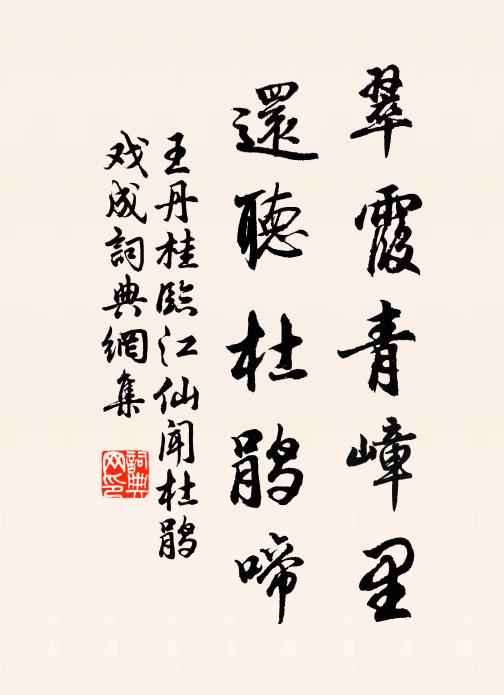 翠霞青嶂里
還聽杜鵑啼
王丹桂臨江仙聞杜鹃
戏成詞典網集
詞典
网印